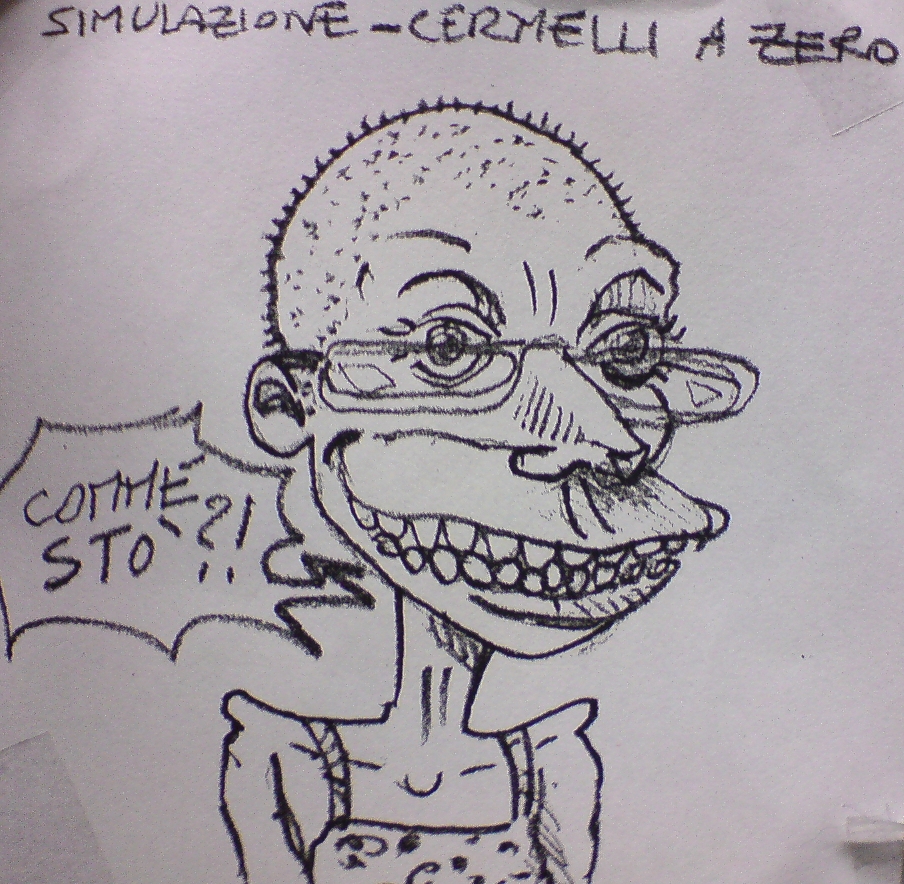 SIMULAZIONE - CERMELLI A ZERO
COMME
STO'?!